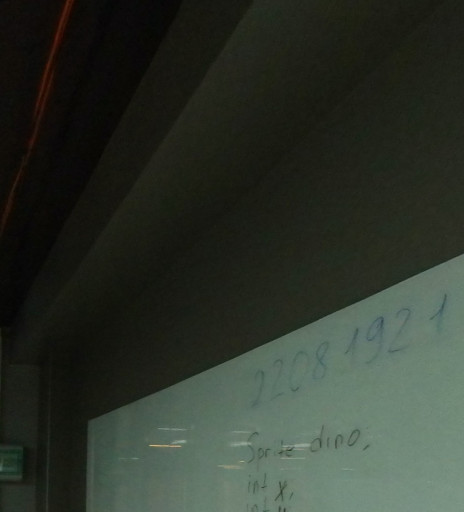 22081921
Sprite dino;
int x;